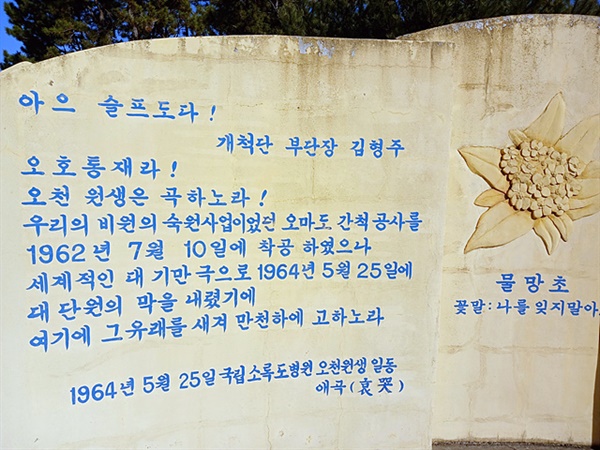 아으 슬프도다!
개척단 부단장 김형주
오호통재라!
오천 원생은 곡하노라!
우리의 비원의 숙원사업이었던 오마도 간척공사를
1962년 7월 10일에 착공 하였으나
세계적인 대 기만극으로 1964년 5월 25일에
대 단원의 막을 내렸기에
여기에 그유래를 새겨 만천하에 고하노라
1964년 5월 25일 국립소록도병원 오천원생 일동
애곡(哀哭)
물망초
꽃말: 나를 잊지말아